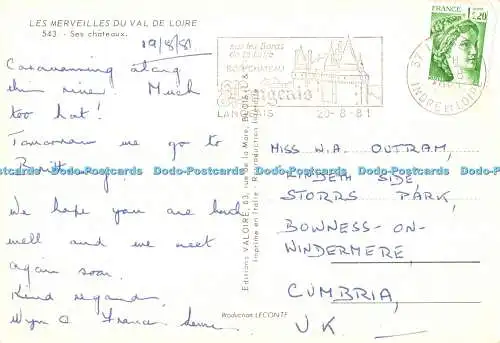 LES MERVEILLES DU VAL DE LOIRE
543 - Ses châteaux.
19/8/81
Caravanning along
this river. Much
too hot!
Tomorrow we go to
We hope you are
well and we meet
again soon.
Kind regards
sur les Bords
de la Loire
BON CHATEAU
LANGEAIS
20-8-81
FRANCE
1,20
INDRE ET LOIRE
Editions VALOIRE, 83, rue de la Mare, BLOIS
Imprimé en Italie - Reproduction Interdite
Production LECONTE
MISS W.A. OUTRAM,
LINDETH SIDE,
STORRS PARK,
BOWNESS-ON-
WINDERMERE,
CUMBRIA,
UK
Dodo-Postcards Dodo-Postcards Dodo-Postcards Dodo-Postcards Dodo-Postcards